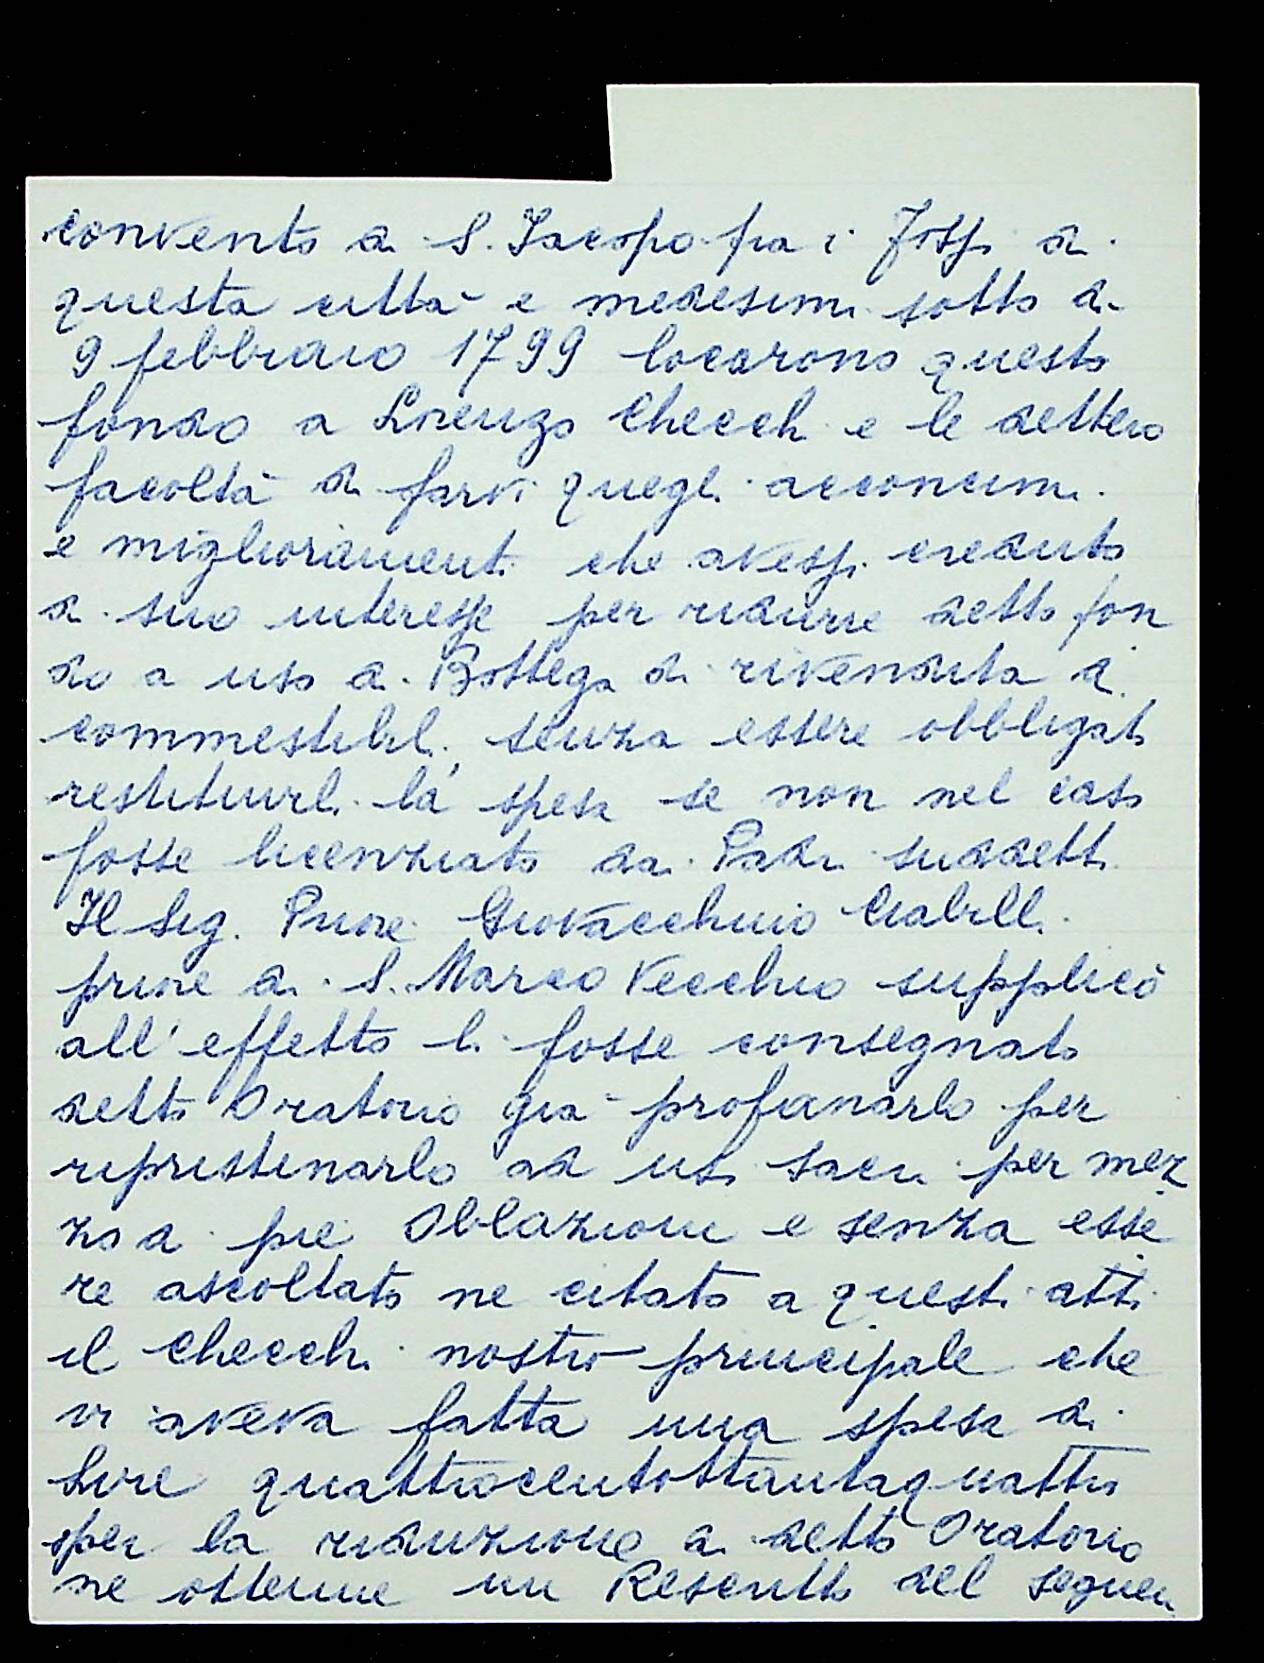 convento di S. Jacopo fra i Fossi di
questa città e medesimi sotto di
9 febbraio 1799 locarono questo
fondo a Lorenzo Checchi e le dettero
facoltà di farvi quegli acconcimi
e miglioramenti che avessi creduto
di suo interesse per ridurre detto fon
do a uso di Bottega di rivendita di
commestibili, senza essere obbligati
restituirli la spesa se non nel caso
fosse licenziato dai Padri suddetti
Il Sig. Priore Giovacchino Ciabilli
priore di S. Marco Vecchio supplicò
all'effetto li fosse consegnato
detto Oratorio già profanarlo per
ripristinarlo ad usi sacri per mez
zo di pie Oblazioni e senza esse
re ascoltato ne citato a questi atti
il Checchi nostro principale che
vi aveva fatta una spesa di
Lire quattrocentottantaquattro
per la riduzione di detto Oratorio
ne ottenne un Rescritto del seguen